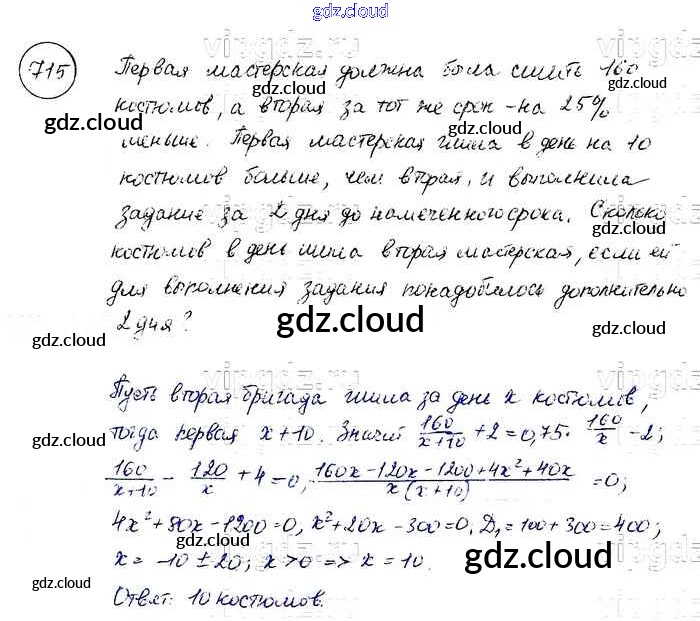 gdz.cloud
715 Первая мастерская должна была сшить 160
костюмов, а вторая за тот же срок - на 25%
gdz.cloud gdz.cloud
меньше. Первая мастерская шила в день на 10
костюмов больше, чем вторая, и выполнила
gdz.cloud
задание за 2 дня до намеченного срока. Сколько
gdz.cloud
костюмов в день шила вторая мастерская, если ей
для выполнения задания понадобилось дополнительно
2 дня?
gdz.cloud gdz.cloud gdz.cloud
Пусть вторая бригада шила за день x костюмов,
тогда первая x+10. Значит 160/(x+10) + 2 = 0,75 · 160/x - 2;
gdz.cloud gdz.cloud
160/(x+10) - 120/x + 4 = 0, (160x - 120x - 1200 + 4x² + 40x)/(x(x+10)) = 0;
4x² + 80x - 1200 = 0, x² + 20x - 300 = 0, D₁ = 100 + 300 = 400;
gdz.cloud
x = -10 ± 20; x > 0 => x = 10.
gdz.cloud gdz.cloud
Ответ: 10 костюмов.
gdz.cloud